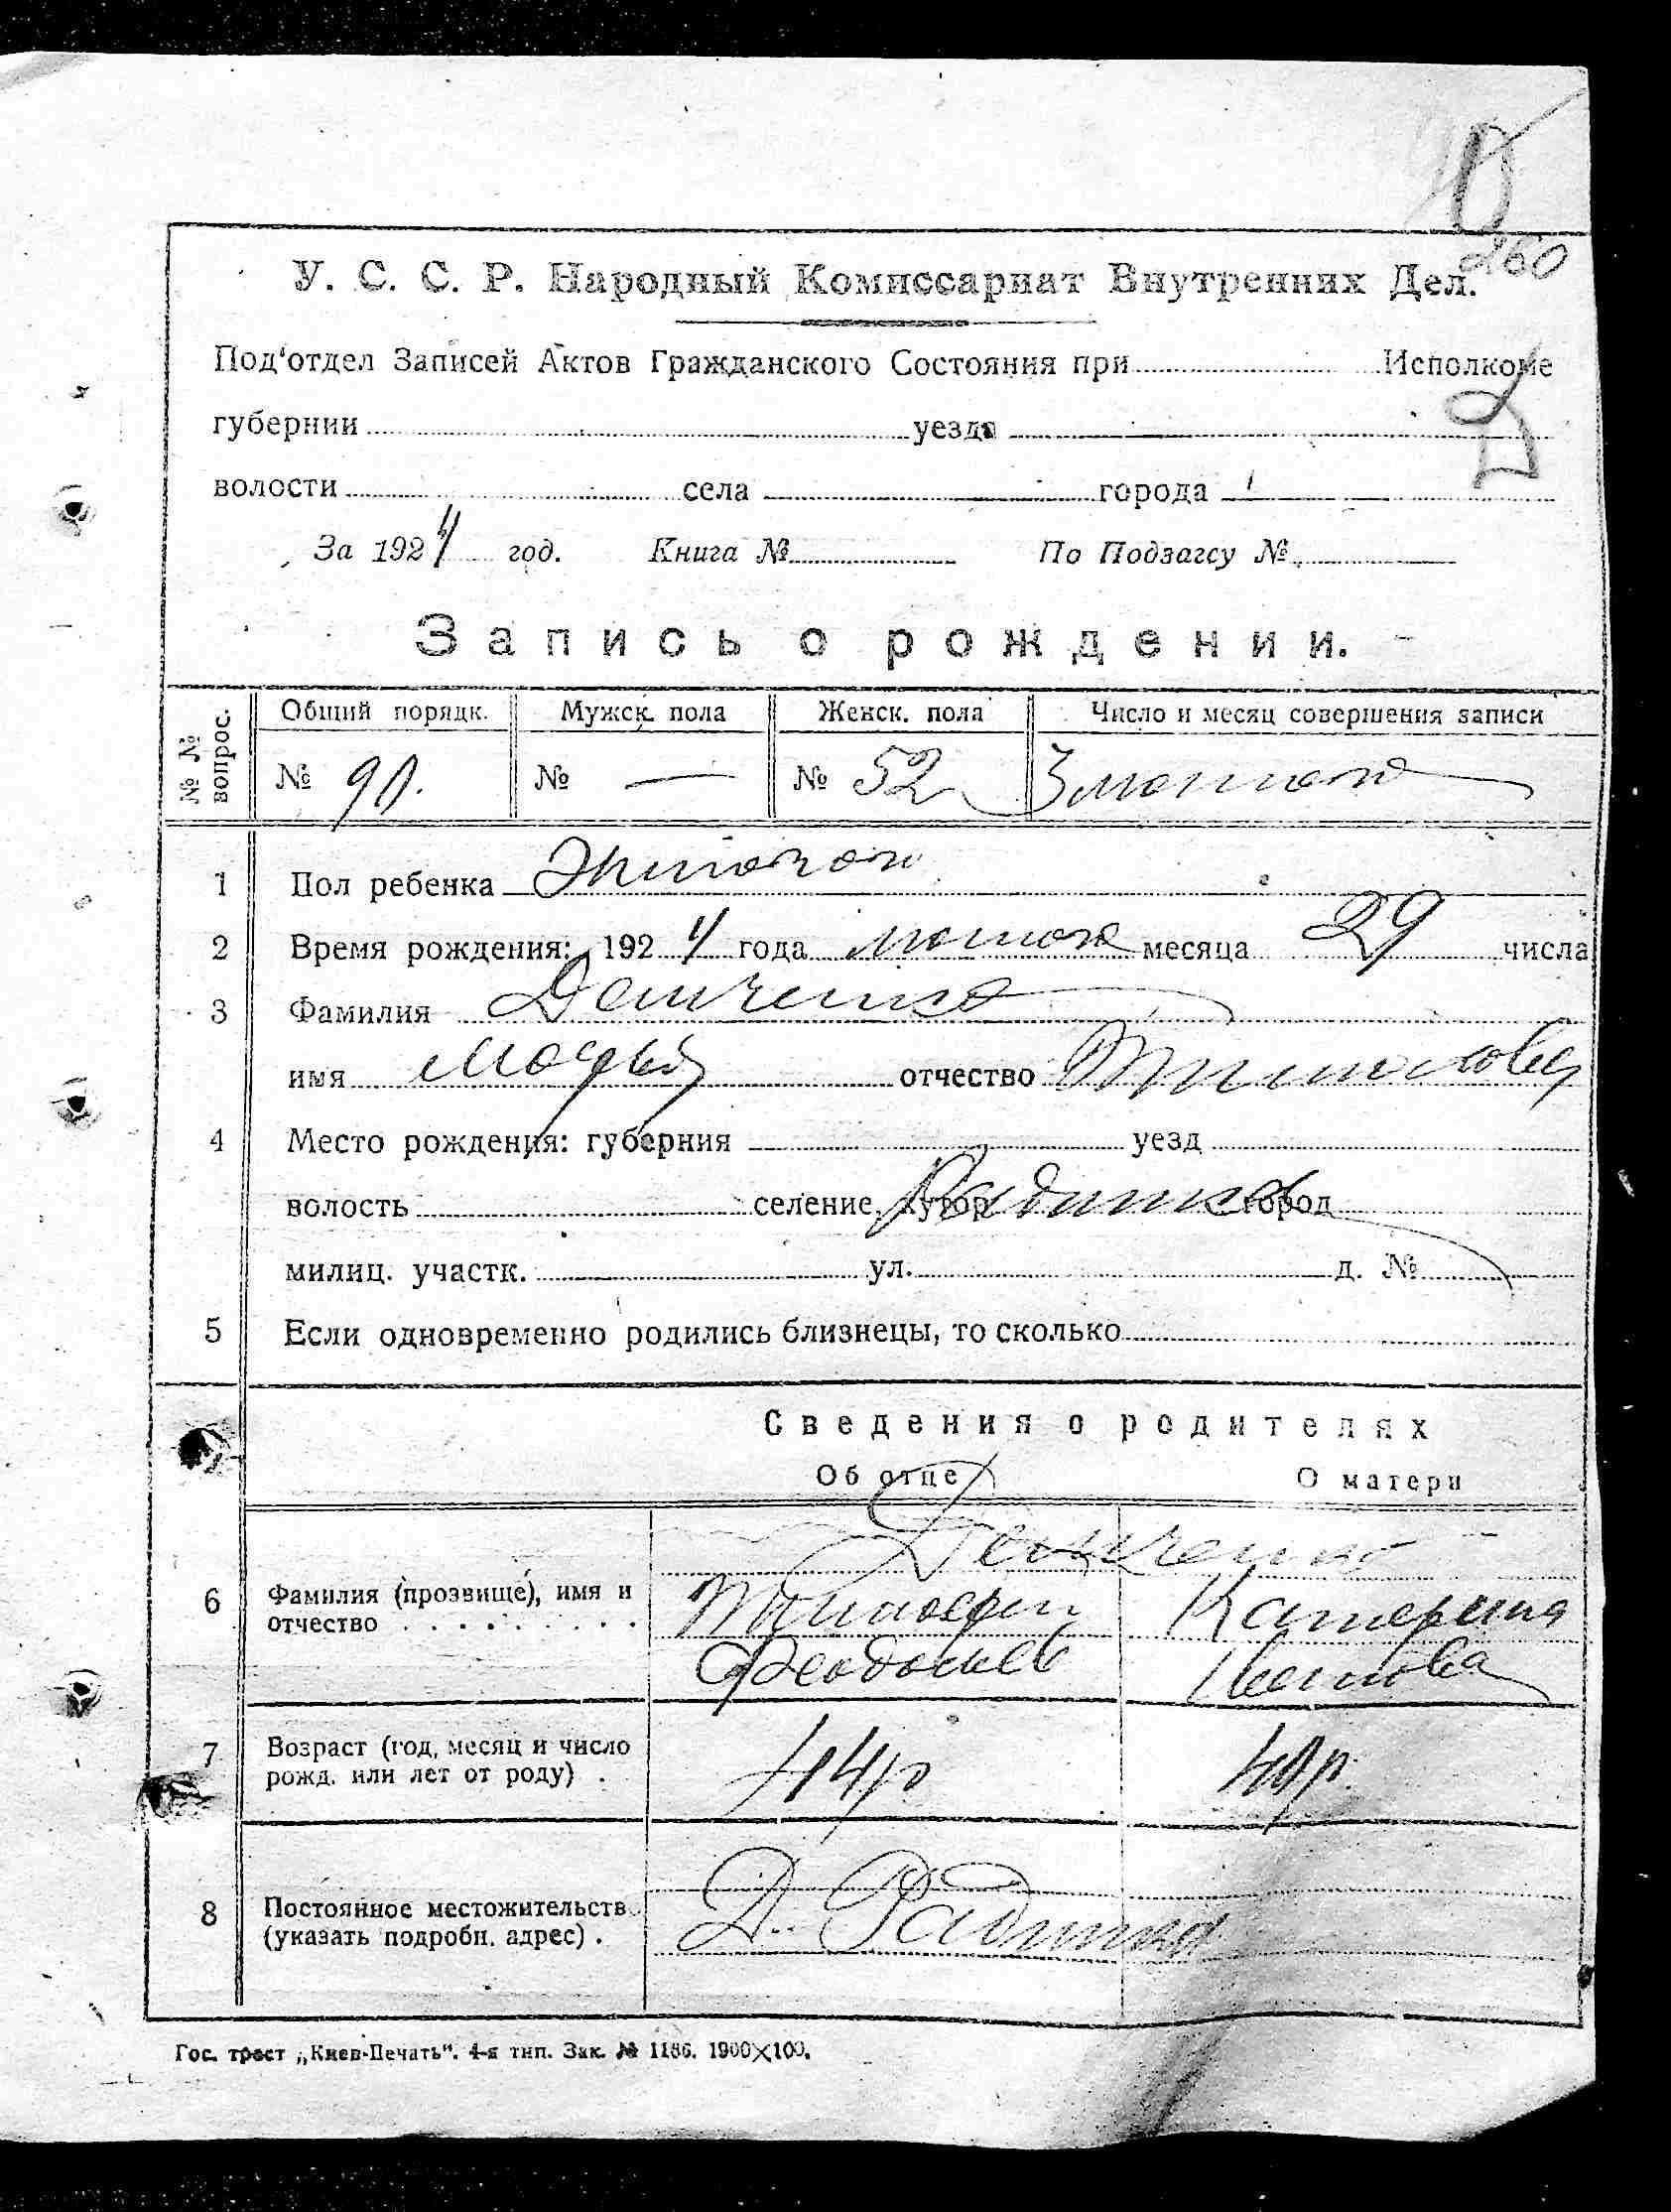 260
У. С. С. Р. Народный Комиссариат Внутренних Дел.
Под'отдел Записей Актов Гражданского Состояния при Исполкоме
губернии уезда
волости села города
За 1924 год. Книга № По Подзагсу №
Запись о рождении.
№ № вопрос. Общий порядк. Мужск. пола Женск. пола Число и месяц совершения записи
№ 90. № — № 52
1 Пол ребенка
2 Время рождения: 1924 года месяца 29 числа
3 Фамилия Демченко
имя Марья отчество
4 Место рождения: губерния уезд
волость селение, хутор город
милиц. участк. ул. д. №
5 Если одновременно родились близнецы, то сколько
Сведения о родителях
Об отце О матери
Демченко
6 Фамилия (прозвище), имя и Тимофей Катерина
отчество Феодосьев
7 Возраст (год, месяц и число
рожд. или лет от роду) 44 р 40 р.
8 Постоянное местожительств.
(указать подробн. адрес)
Гос. трест „Киев-Печать". 4-я тип. Зак. № 1186. 1900×100.